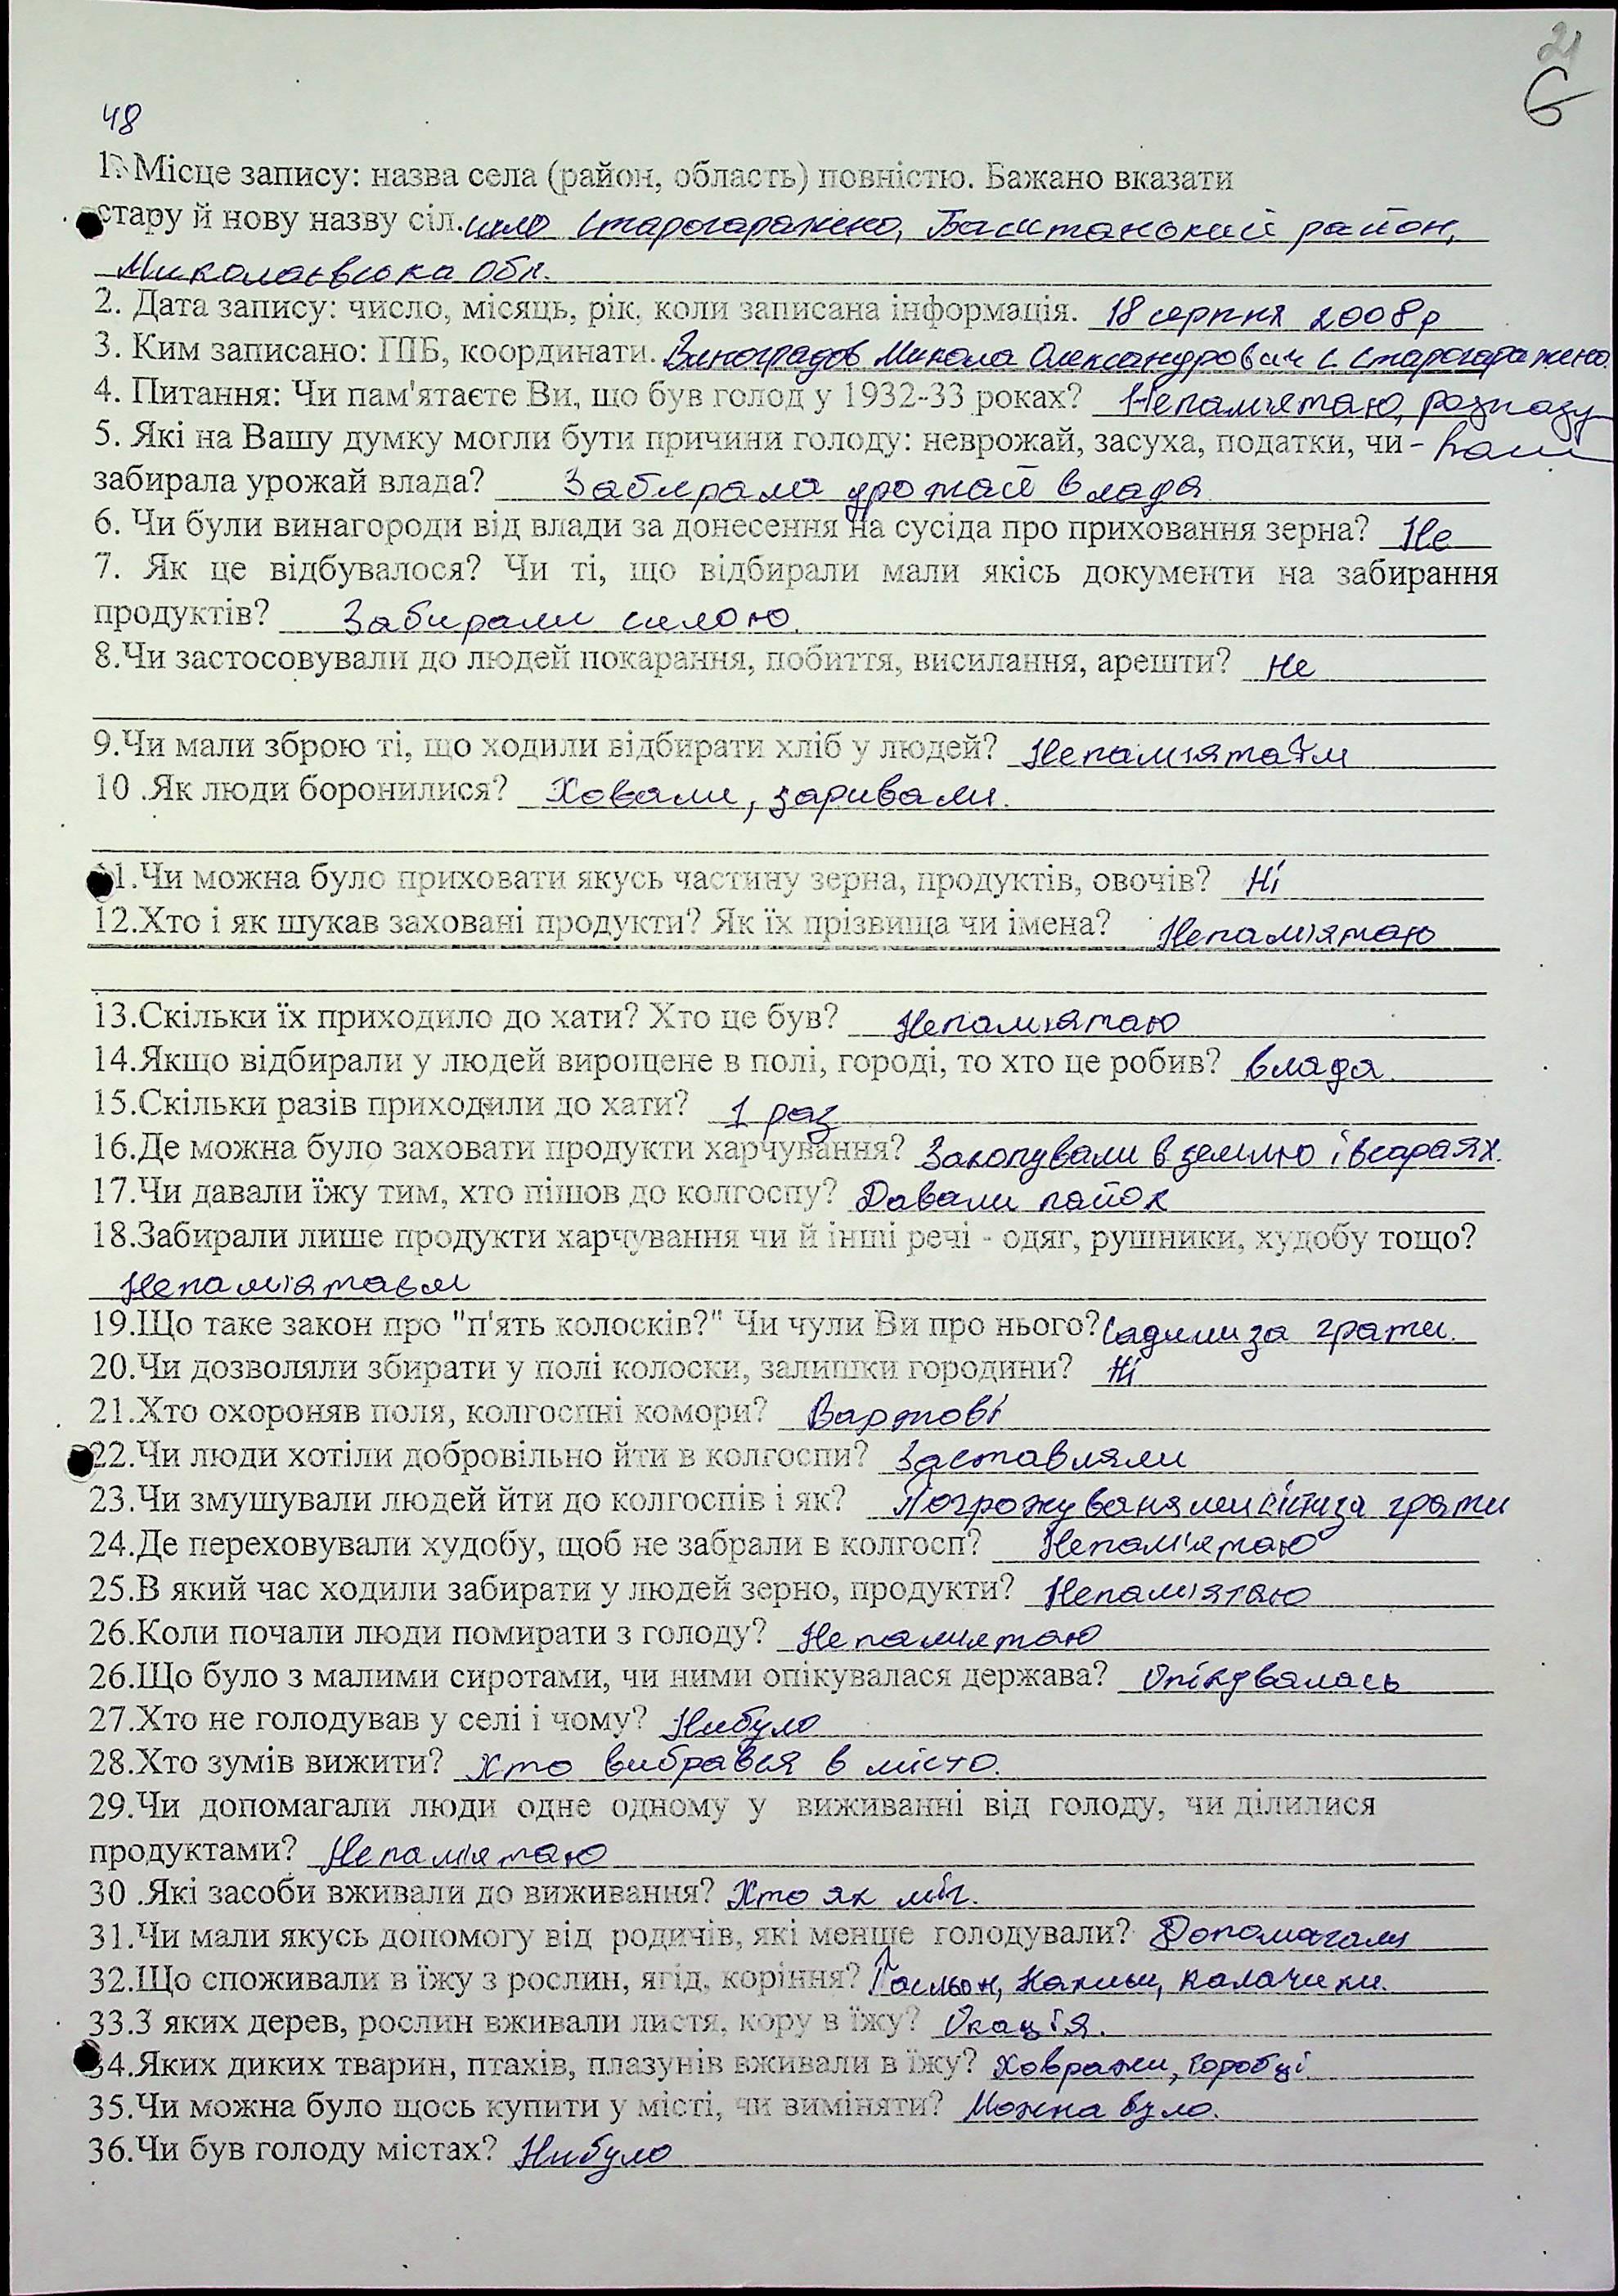 21
6
48
1. Місце запису: назва села (район, область) повністю. Бажано вказати
стару й нову назву сіл. село Старогорожено, Баштанський район,
Миколаївська обл.
2. Дата запису: число, місяць, рік, коли записана інформація. 18 серпня 2008р
3. Ким записано: ПІБ, координати. Виноградов Микола Олександрович с. Старогорожено
4. Питання: Чи пам'ятаєте Ви, що був голод у 1932-33 роках? Непам'ятаю, розказу-
5. Які на Вашу думку могли бути причини голоду: неврожай, засуха, податки, чи - вали
забирала урожай влада? Забирала урожай влада
6. Чи були винагороди від влади за донесення на сусіда про приховання зерна? Не
7. Як це відбувалося? Чи ті, що відбирали мали якісь документи на забирання
продуктів? Забирали силою.
8.Чи застосовували до людей покарання, побиття, висилання, арешти? Не
9.Чи мали зброю ті, що ходили відбирати хліб у людей? Непам'ятаєм
10 .Як люди боронилися? Ховали, заривали.
11.Чи можна було приховати якусь частину зерна, продуктів, овочів? Ні
12.Хто і як шукав заховані продукти? Як їх прізвища чи імена? Непам'ятаю
13.Скільки їх приходило до хати? Хто це був? Непам'ятаю
14.Якщо відбирали у людей вирощене в полі, городі, то хто це робив? влада.
15.Скільки разів приходили до хати? 1 раз
16.Де можна було заховати продукти харчування? Закопували в землю і всараях.
17.Чи давали їжу тим, хто пішов до колгоспу? Давали пайок
18.Забирали лише продукти харчування чи й інші речі - одяг, рушники, худобу тощо?
Непам'ятаєм
19.Що таке закон про "п'ять колосків?" Чи чули Ви про нього? Садили за грати.
20.Чи дозволяли збирати у полі колоски, залишки городини? Ні
21.Хто охороняв поля, колгоспні комори? Вартові
22.Чи люди хотіли добровільно йти в колгоспи? Заставляли
23.Чи змушували людей йти до колгоспів і як? Погрожуваня за грати
24.Де переховували худобу, щоб не забрали в колгосп? Непам'ятаю
25.В який час ходили забирати у людей зерно, продукти? Непам'ятаю
26.Коли почали люди помирати з голоду? Непам'ятаю
26.Що було з малими сиротами, чи ними опікувалася держава? Опікувалась
27.Хто не голодував у селі і чому? Нибуло
28.Хто зумів вижити? Хто вибрався в місто.
29.Чи допомагали люди одне одному у виживанні від голоду, чи ділилися
продуктами? Непам'ятаю
30 .Які засоби вживали до виживання? Хто як міг.
31.Чи мали якусь допомогу від родичів, які менше голодували? Допомагали
32.Що споживали в їжу з рослин, ягід, коріння? Пасльон, калачики.
33.З яких дерев, рослин вживали листя, кору в їжу? Окація.
34.Яких диких тварин, птахів, плазунів вживали в їжу? Ховрахи, горобці
35.Чи можна було щось купити у місті, чи виміняти? Можна було.
36.Чи був голоду містах? Нибуло